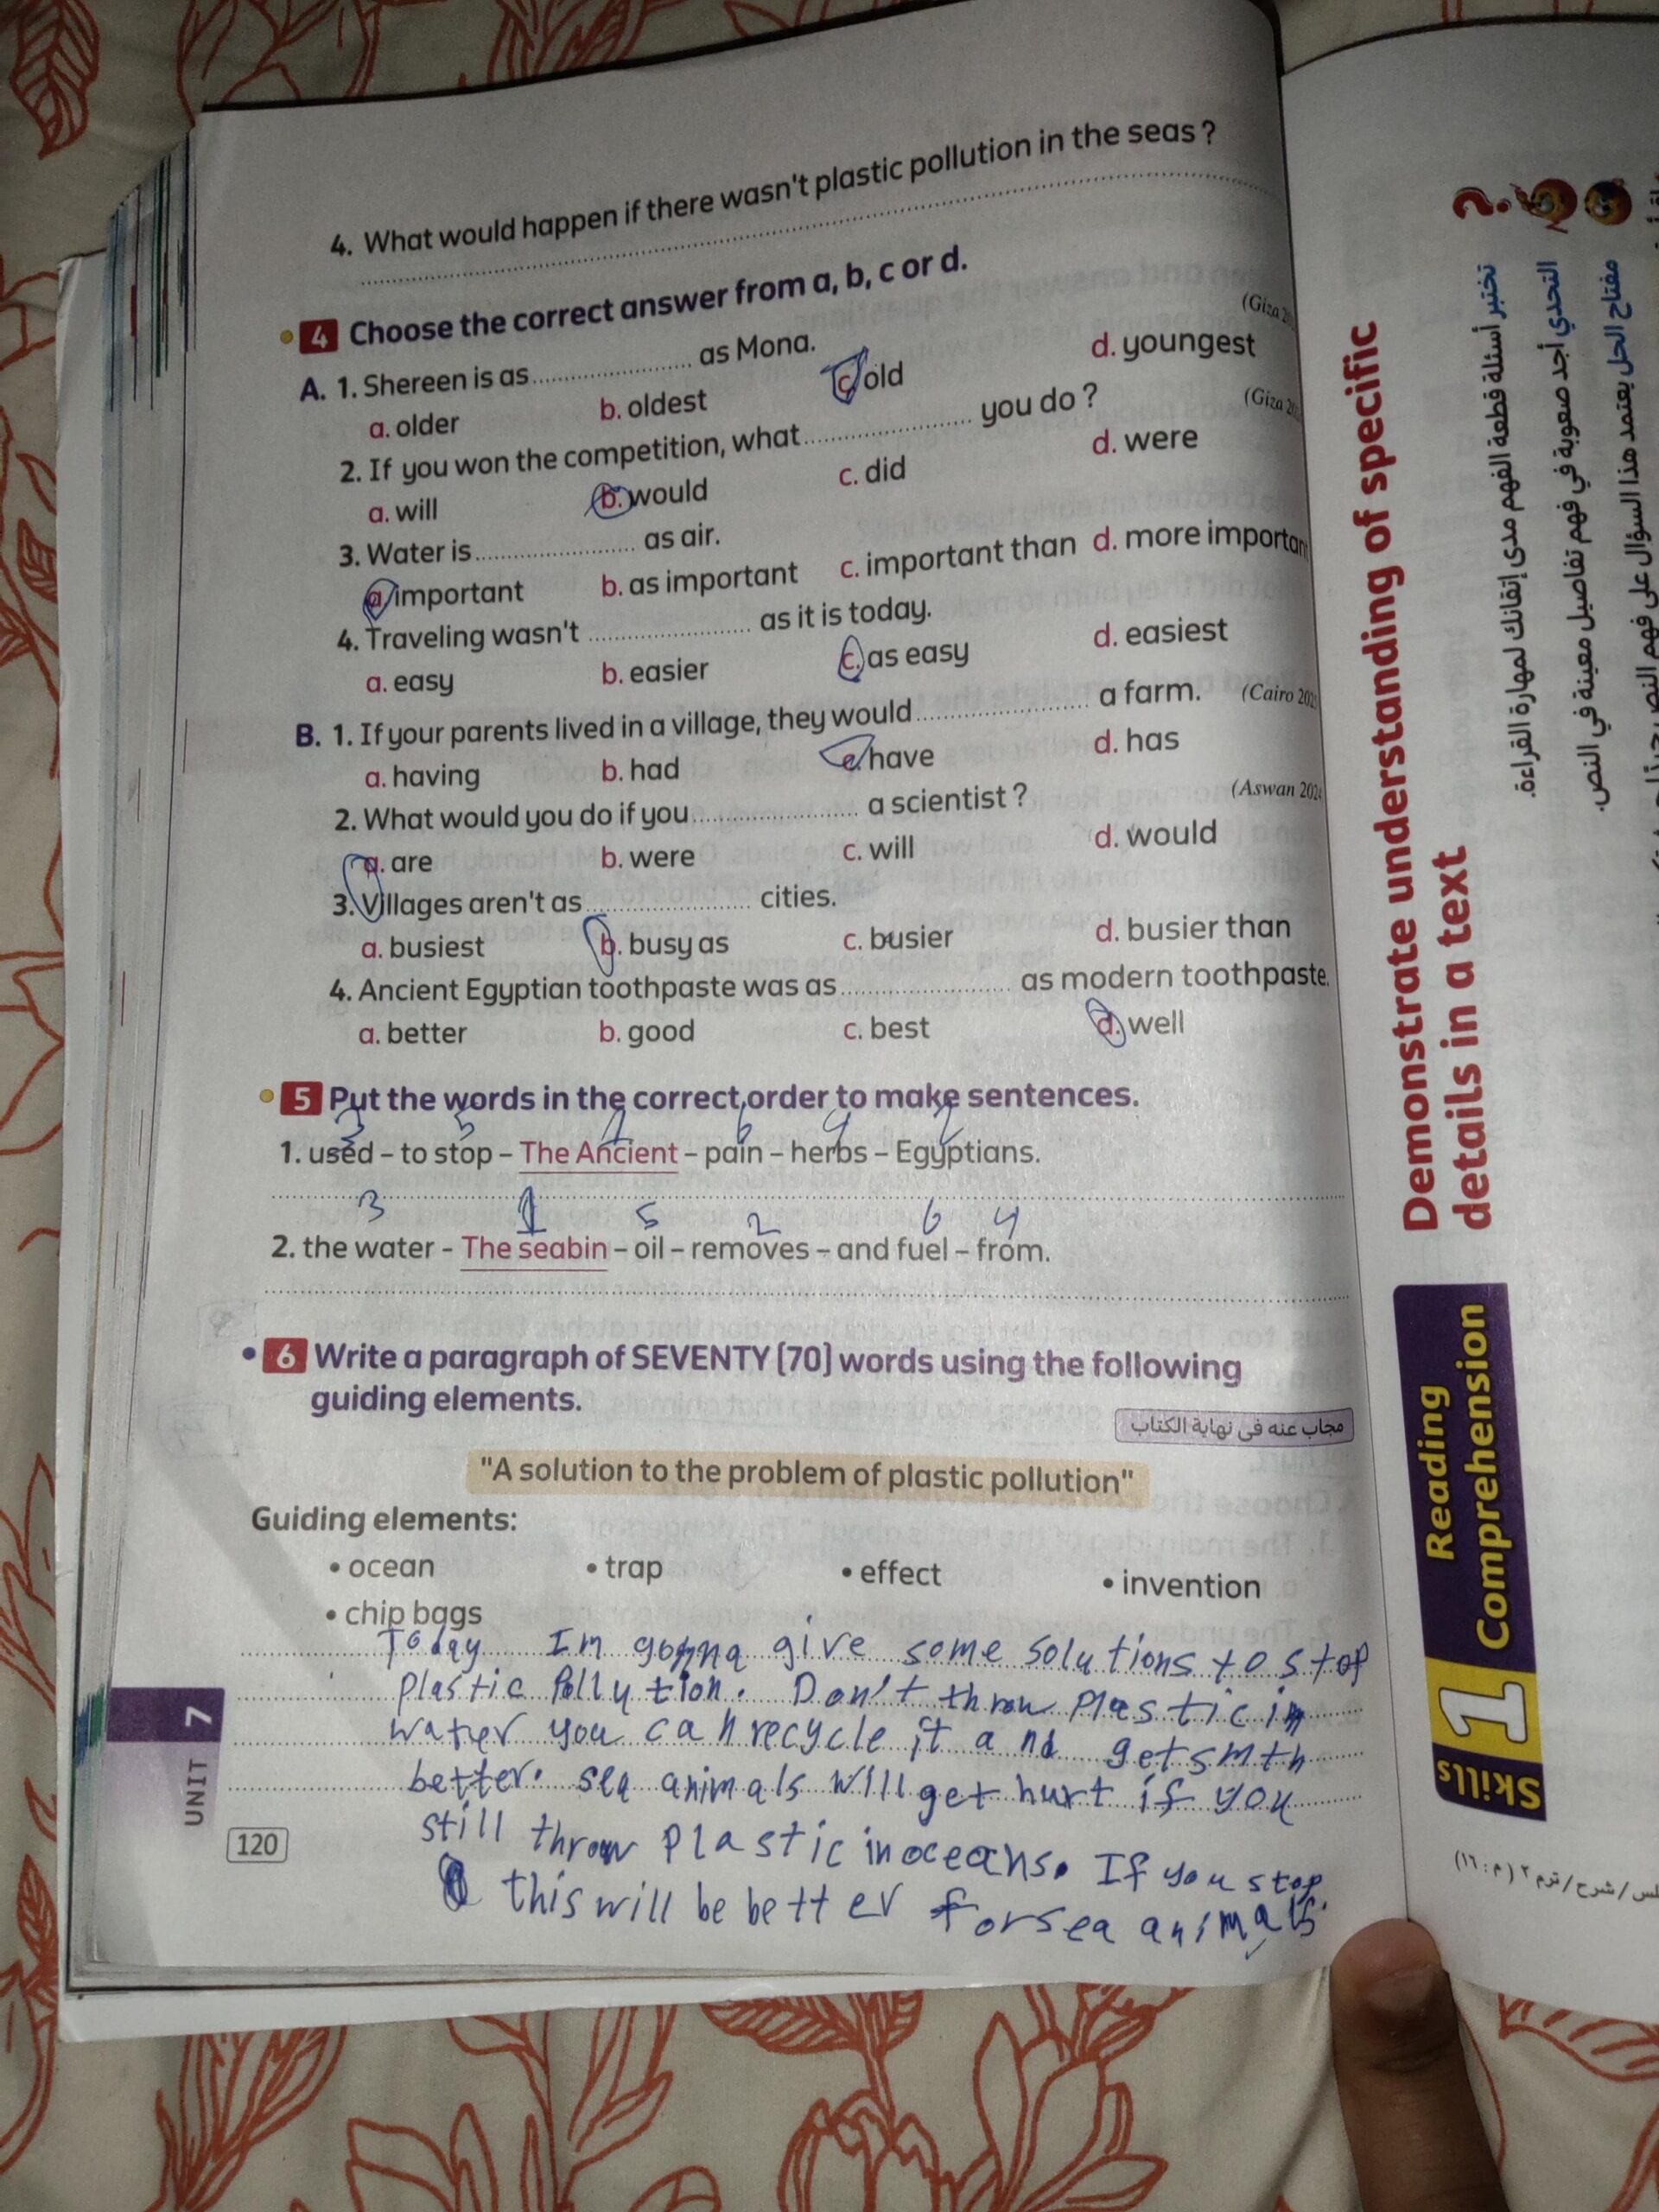 4. What would happen if there wasn't plastic pollution in the seas ?
4 Choose the correct answer from a, b, c or d.
(Giza
A. 1. Shereen is as ........................ as Mona.
a. older b. oldest c. old d. youngest
2. If you won the competition, what ........................ you do ? (Giza
a. will b. would c. did d. were
3. Water is ........................ as air.
a. important b. as important c. important than d. more important
4. Traveling wasn't ........................ as it is today.
a. easy b. easier c. as easy d. easiest
B. 1. If your parents lived in a village, they would ........................ a farm. (Cairo 202
a. having b. had c. have d. has
2. What would you do if you ........................ a scientist ? (Aswan 202
a. are b. were c. will d. would
3. Villages aren't as ........................ cities.
a. busiest b. busy as c. busier d. busier than
4. Ancient Egyptian toothpaste was as ........................ as modern toothpaste.
a. better b. good c. best d. well
5 Put the words in the correct order to make sentences.
3 5 1 6 4 2
1. used – to stop – The Ancient – pain – herbs – Egyptians.
3 1 5 2 6 4
2. the water – The seabin – oil – removes – and fuel – from.
6 Write a paragraph of SEVENTY (70) words using the following
guiding elements.
مجاب عنه فى نهاية الكتاب
"A solution to the problem of plastic pollution"
Guiding elements:
• ocean • trap • effect • invention
• chip bags
Today Im gonna give some solutions to stop
Plastic Pollution. Don't throw Plastic in
water you can recycle it and get smth
better. sea animals will get hurt if you
still throw Plastic in oceans. If you stop
this will be better for sea animals.
UNIT 7
120
Demonstrate understanding of specific
details in a text
Reading
Comprehension
Skills 1
?
تختبر أسئلة قطعة الفهم مدى إتقانك لمهارة القراءة.
التحدي أجد صعوبة في فهم تفاصيل معينة في النص.
مفتاح الحل يعتمد هذا السؤال على فهم النص
شرح / ترم ٢ (م : ١٦)